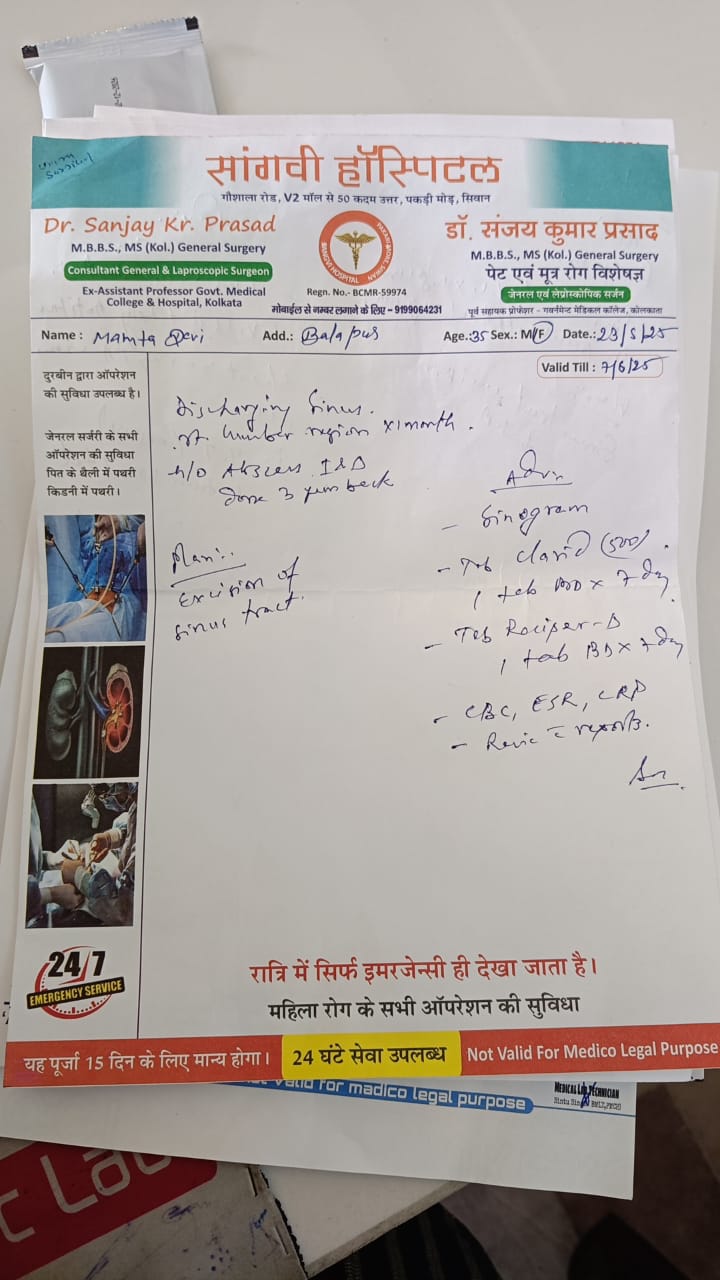 सांगवी हॉस्पिटल
गौशाला रोड, V2 मॉल से 50 कदम उत्तर, पकड़ी मोड़, सिवान
Dr. Sanjay Kr. Prasad
M.B.B.S., MS (Kol.) General Surgery
Consultant General & Laproscopic Surgeon
Ex-Assistant Professor Govt. Medical
College & Hospital, Kolkata
Regn. No.- BCMR-59974
मोबाईल से नम्बर लगाने के लिए - 9199064231
डॉ. संजय कुमार प्रसाद
M.B.B.S., MS (Kol.) General Surgery
पेट एवं मूत्र रोग विशेषज्ञ
जेनरल एवं लेप्रोस्कोपिक सर्जन
पूर्व सहायक प्रोफेशर - गवर्नमेन्ट मेडिकल कॉलेज, कोलकाता
Name : Mamta Devi Add.: Balapur Age.: 35 Sex.: M/F Date.: 23/5/25
Valid Till : 7/6/25
दुरबीन द्वारा ऑपरेशन
की सुविधा उपलब्ध है।
जेनरल सर्जरी के सभी
ऑपरेशन की सुविधा
पित के थैली में पथरी
किडनी में पथरी।
Discharging Sinus.
lumber region x 1 month.
H/O Abscess I&D
done 3 back
Plan:-
Excision of
sinus tract.
Adv:-
- Sinogram
- Tab (500)
1 tab BD x 7 day
- Tab
1 tab BD x 7 day
- CBC, ESR, CRP
- reports.
24/7
EMERGENCY SERVICE
रात्रि में सिर्फ इमरजेन्सी ही देखा जाता है।
महिला रोग के सभी ऑपरेशन की सुविधा
यह पूर्जा 15 दिन के लिए मान्य होगा।
24 घंटे सेवा उपलब्ध
Not Valid For Medico Legal Purpose
valid for madico legal purpose
MEDICAL LAB TECHNICIAN